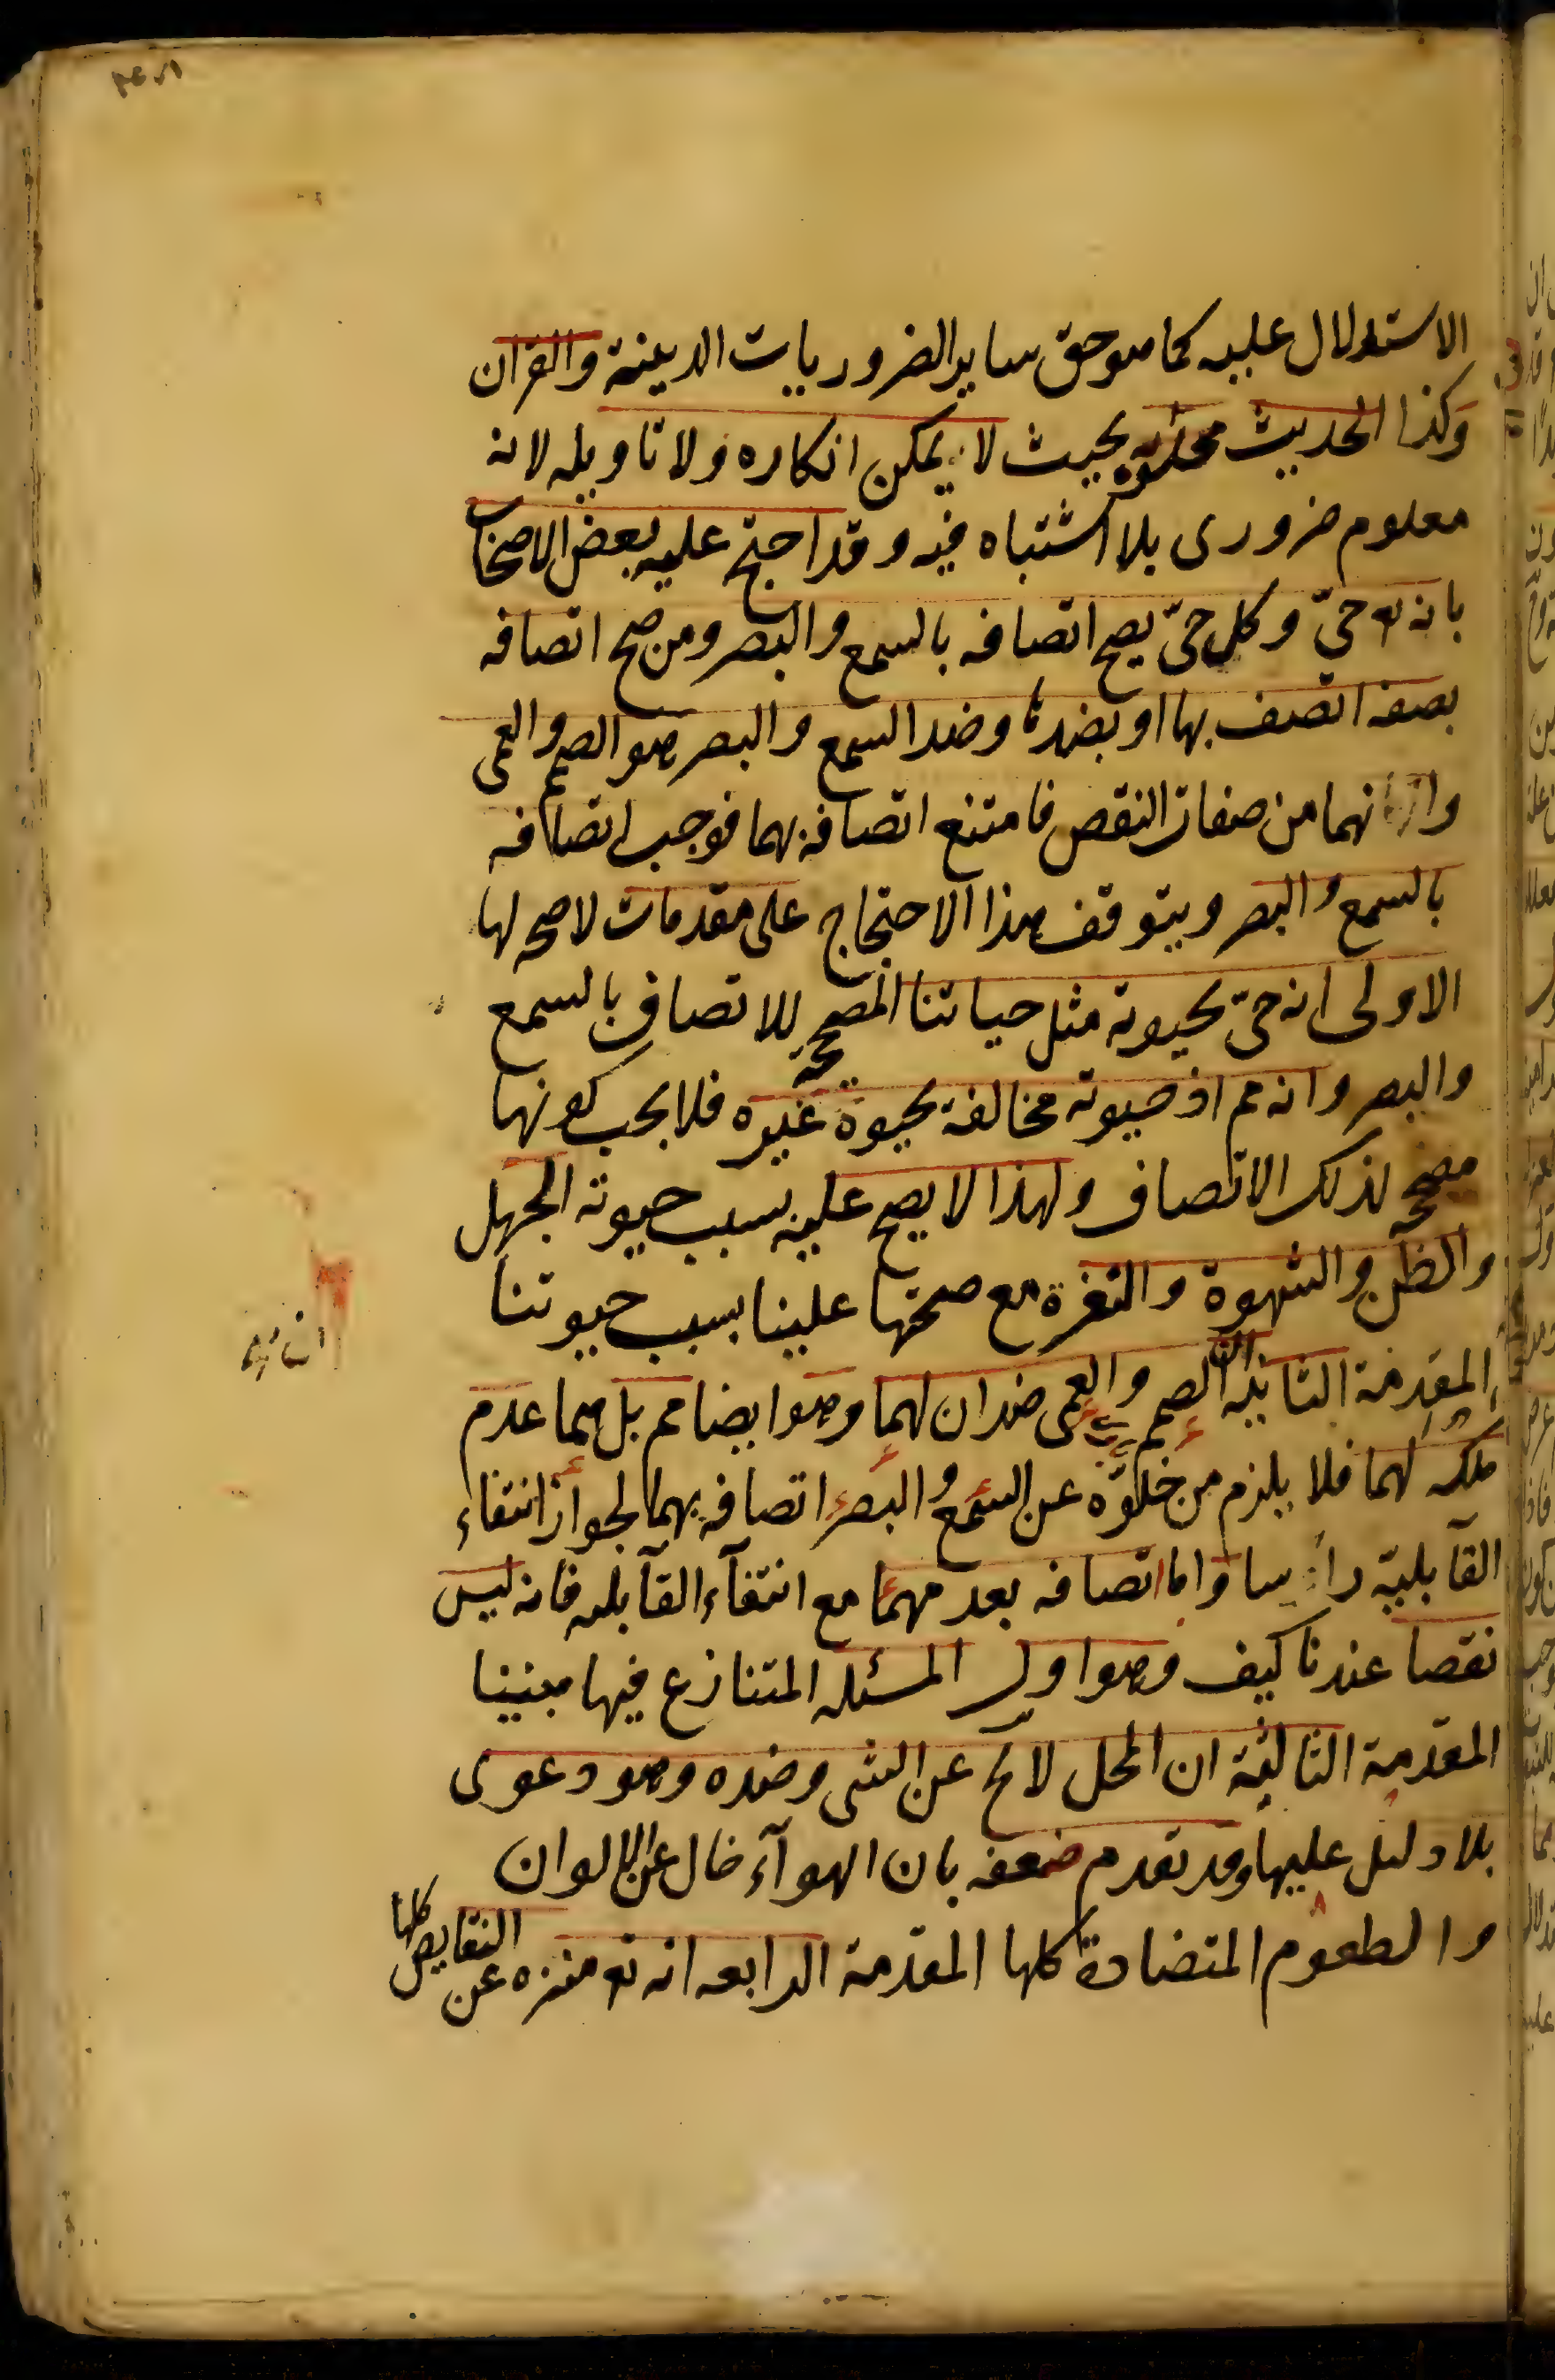 الاستدلال عليه كما هو حق ساير الضروريات الدينية والقرآن
وكذا الحديث مملوّ به بحيث لا يمكن انكاره ولا تاويله لانه
معلوم ضرورى بلا اشتباه فيه وقد احتج عليه بعض الاصحاب
بانه تع حىّ وكل حىّ يصح اتصافه بالسمع والبصر ومن صح اتصافه
بصفه اتصف بها او بضدها وضد السمع والبصر هو الصمم والعمى
وانهما من صفات النقص فامتنع اتصافه بهما فوجب اتصافه
بالسمع والبصر ويتوقف هذا الاحتجاج على مقدمات لا صحه لها
الاولى انه حىّ بحيوته مثل حياتنا المصححة للاتصاف بالسمع
والبصر وانه مم اذ حيوته مخالفة بحيوة غيره فلا يجب كونها
مصححه لذلك الاتصاف ولهذا لا يصح عليه بسبب حيوته الجهل
والظن والشهوة والنفرة مع صحتها علينا بسبب حيوتنا
المقدمة الثانية ان الصمم والعمى ضدان لهما وهو ايضا مم بل هما عدم
ملكه لهما فلا يلزم من خلوّه عن السمع والبصر اتصافه بهما لجواز انتفاء
القابليّة راسا واما اتصافه بعدمهما مع انتفآء القآبله فانه ليس
نقصا عندنا كيف وهو اول المسئله المتنازع فيها بيننا
المقدمة الثالثة ان المحل لا يخ عن الشى وضده وهو دعوى
بلا دليل عليها وقد تقدم ضعفه بان الهوآء خال عن الالوان
والطعوم المتضادة كلها المقدمة الرابعه انه تع منزه عن النقايص كلها